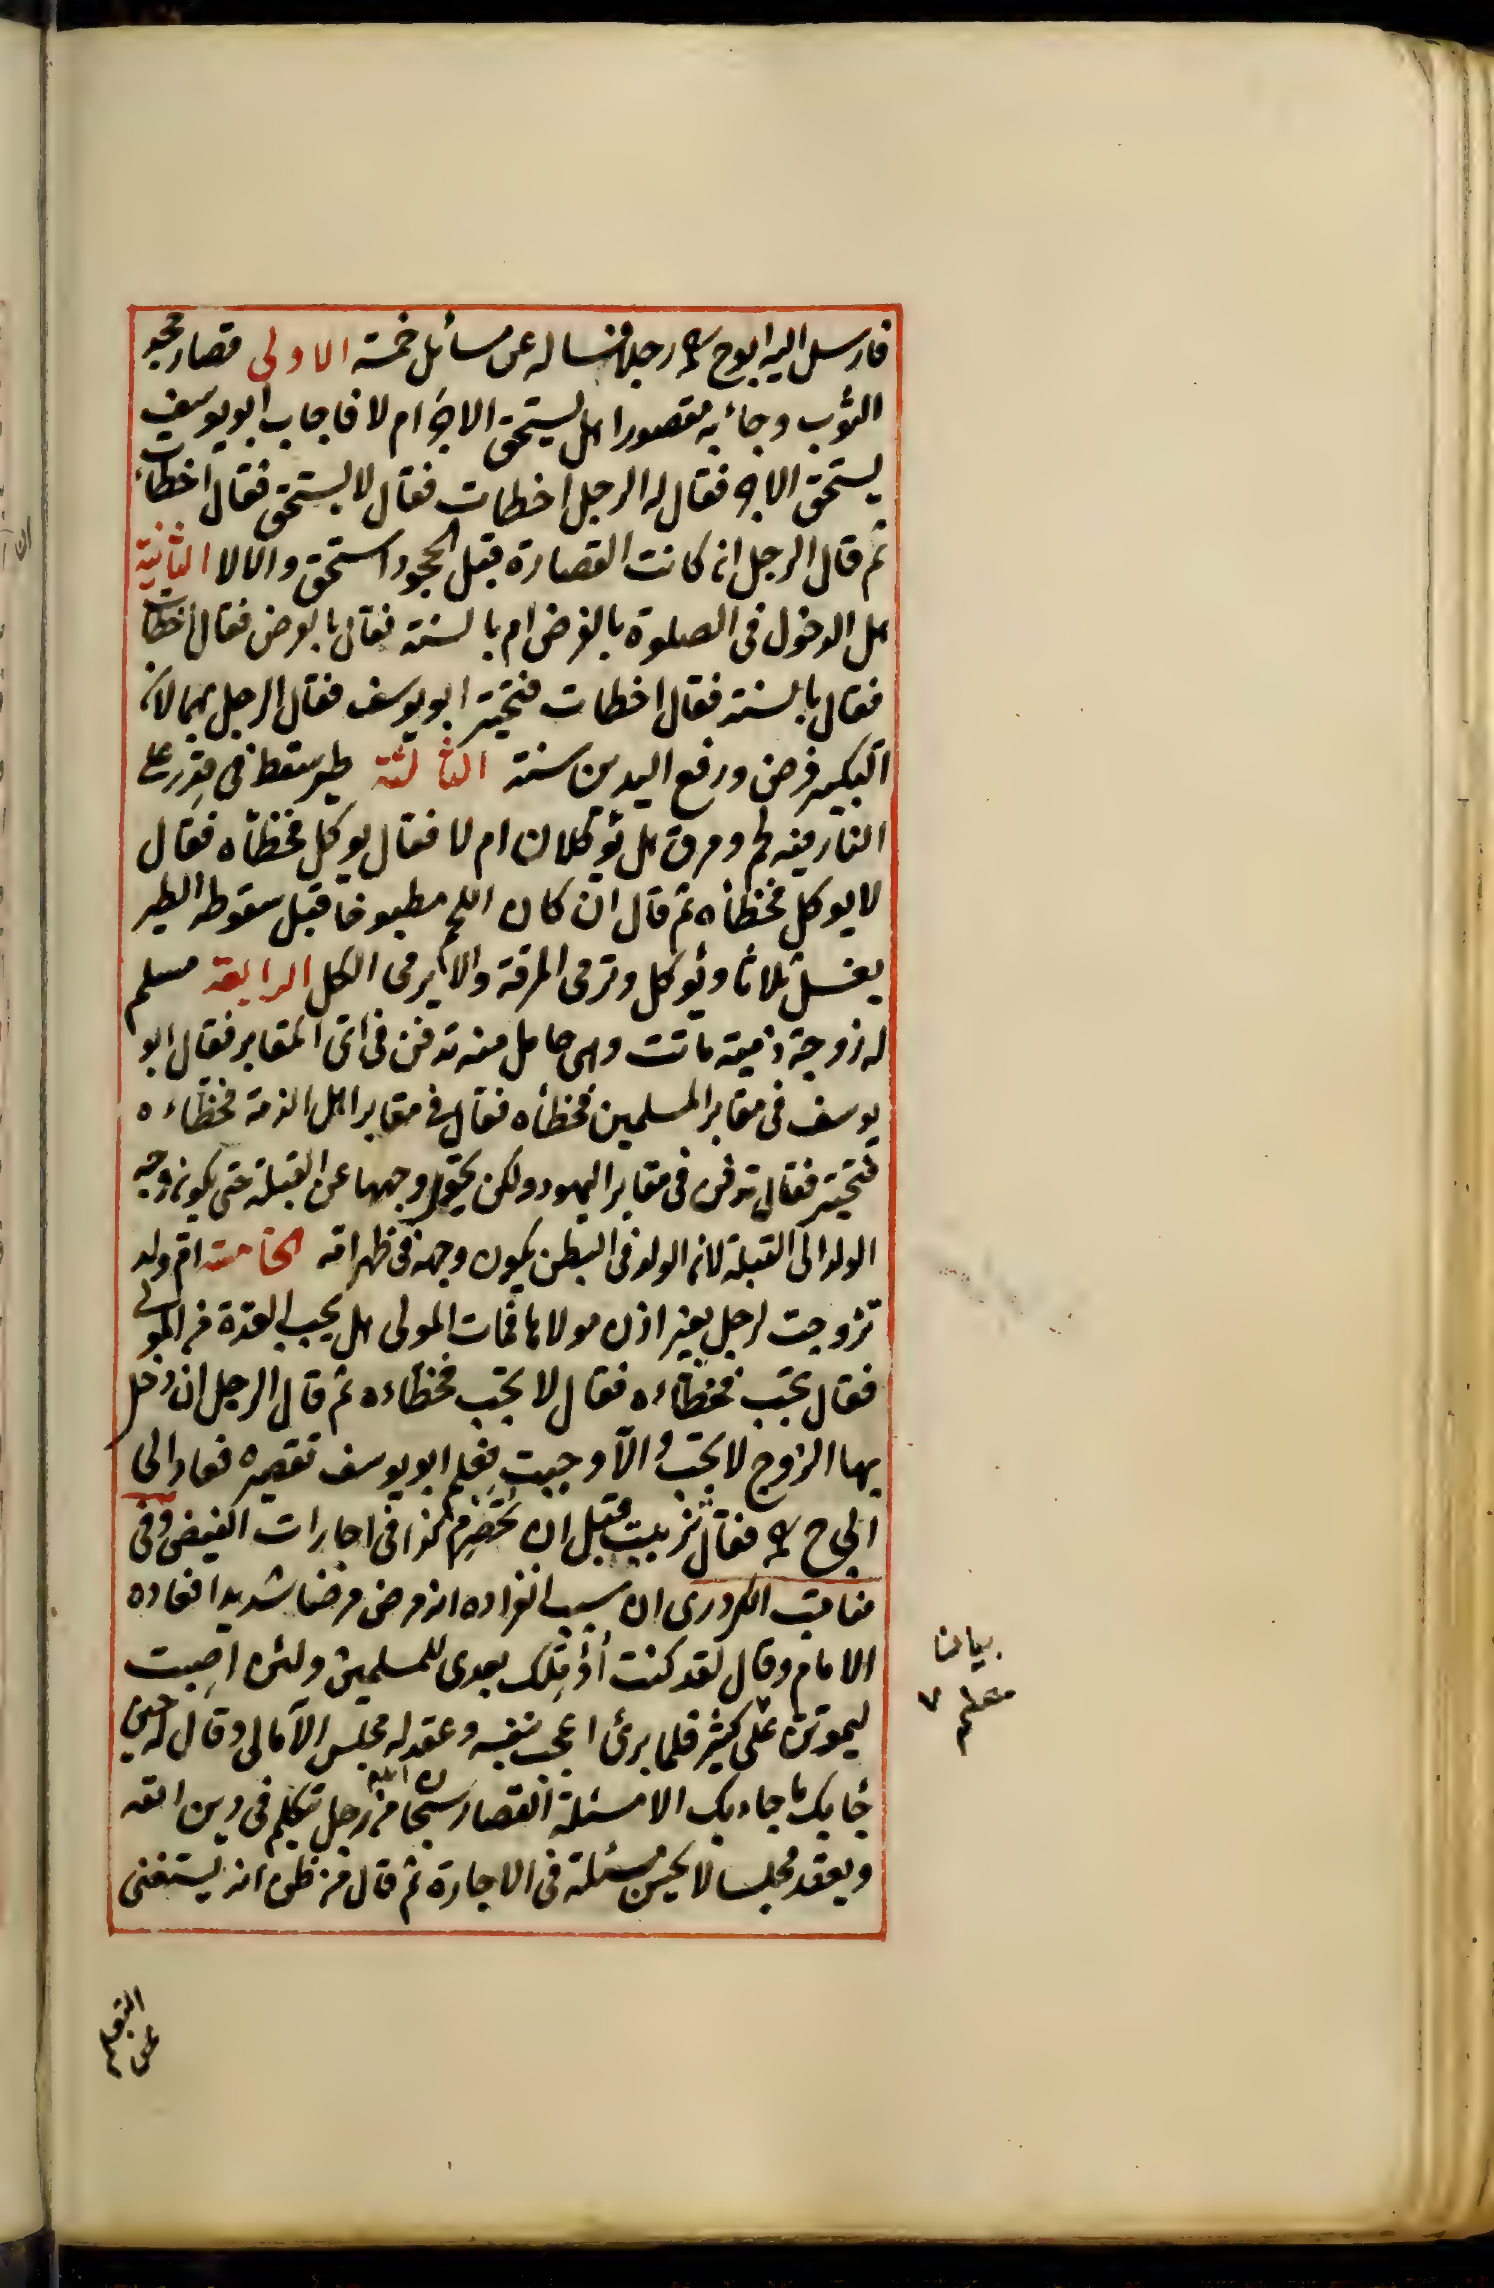 فارسل اليه ابوح رح رجلا فسأله عن مسائل خمسة الاولى قصار جحد
الثوب وجاء به مقصورا هل يستحق الاجر ام لا فاجاب ابو يوسف
يستحق الاجر فقال له الرجل اخطات فقال لا يستحق فقال اخطات
ثم قال الرجل ان كانت القصارة قبل الجحود استحق والا لا الثانية
هل الدخول فى الصلوة بالفرض ام بالسنة فقال بالفرض فقال اخطات
فقال بالسنة فقال اخطات فتحير ابو يوسف فقال الرجل بهما لان
التكبير فرض ورفع اليدين سنة الثالثة طير سقط فى قدر على
النار فيه لحم ومرق هل يؤكلان ام لا فقال يوكل فخطأه فقال
لا يوكل فخطأه ثم قال ان كان اللحم مطبوخا قبل سقوط الطير
يغسل ثلاثا ويؤكل وترمى المرقة والا يرمى الكل الرابعة مسلم
له زوجة ذمية ماتت وهى حامل منه تدفن فى اى المقابر فقال ابو
يوسف فى مقابر المسلمين فخطأه فقال فى مقابر اهل الذمة فخطاءه
فتحير فقال تدفن فى مقابر اليهود ولكن يحول وجهها عن القبلة حتى يكون وجه
الولد الى القبلة لان الولد فى البطن يكون وجهه فى ظهر امه الخامسة ام ولد
تزوجت لرجل بغير اذن مولاها فمات المولى هل يجب العدة من المولى
فقال تجب فخطاءه فقال لا تجب فخطاءه ثم قال الرجل ان دخل
بها الزوج لا تجب والا وجبت فعلم ابو يوسف تقصيره فعاد الى
ابى ح رح فقال تزببت قبل ان تحصرم كذا فى اجارات الفيض وفى
مناقب الكردرى ان سبب انفراده انه مرض مرضا شديدا فعاده
الامام وقال لقد كنت أؤملك بعدى للمسلمين ولئن اصبت
ليموتن علم كثير فلما برئ اعجب بنفسه وعقد له مجلس الامالى وقال له حين
جاء بك ما جاء بك الا مسئلة القصار سبحان الله من رجل تتكلم فى دين الله
ويعقد مجلسا لا يحسن مسئلة فى الاجارة ثم قال من ظن انه يستغنى
عن التعلم